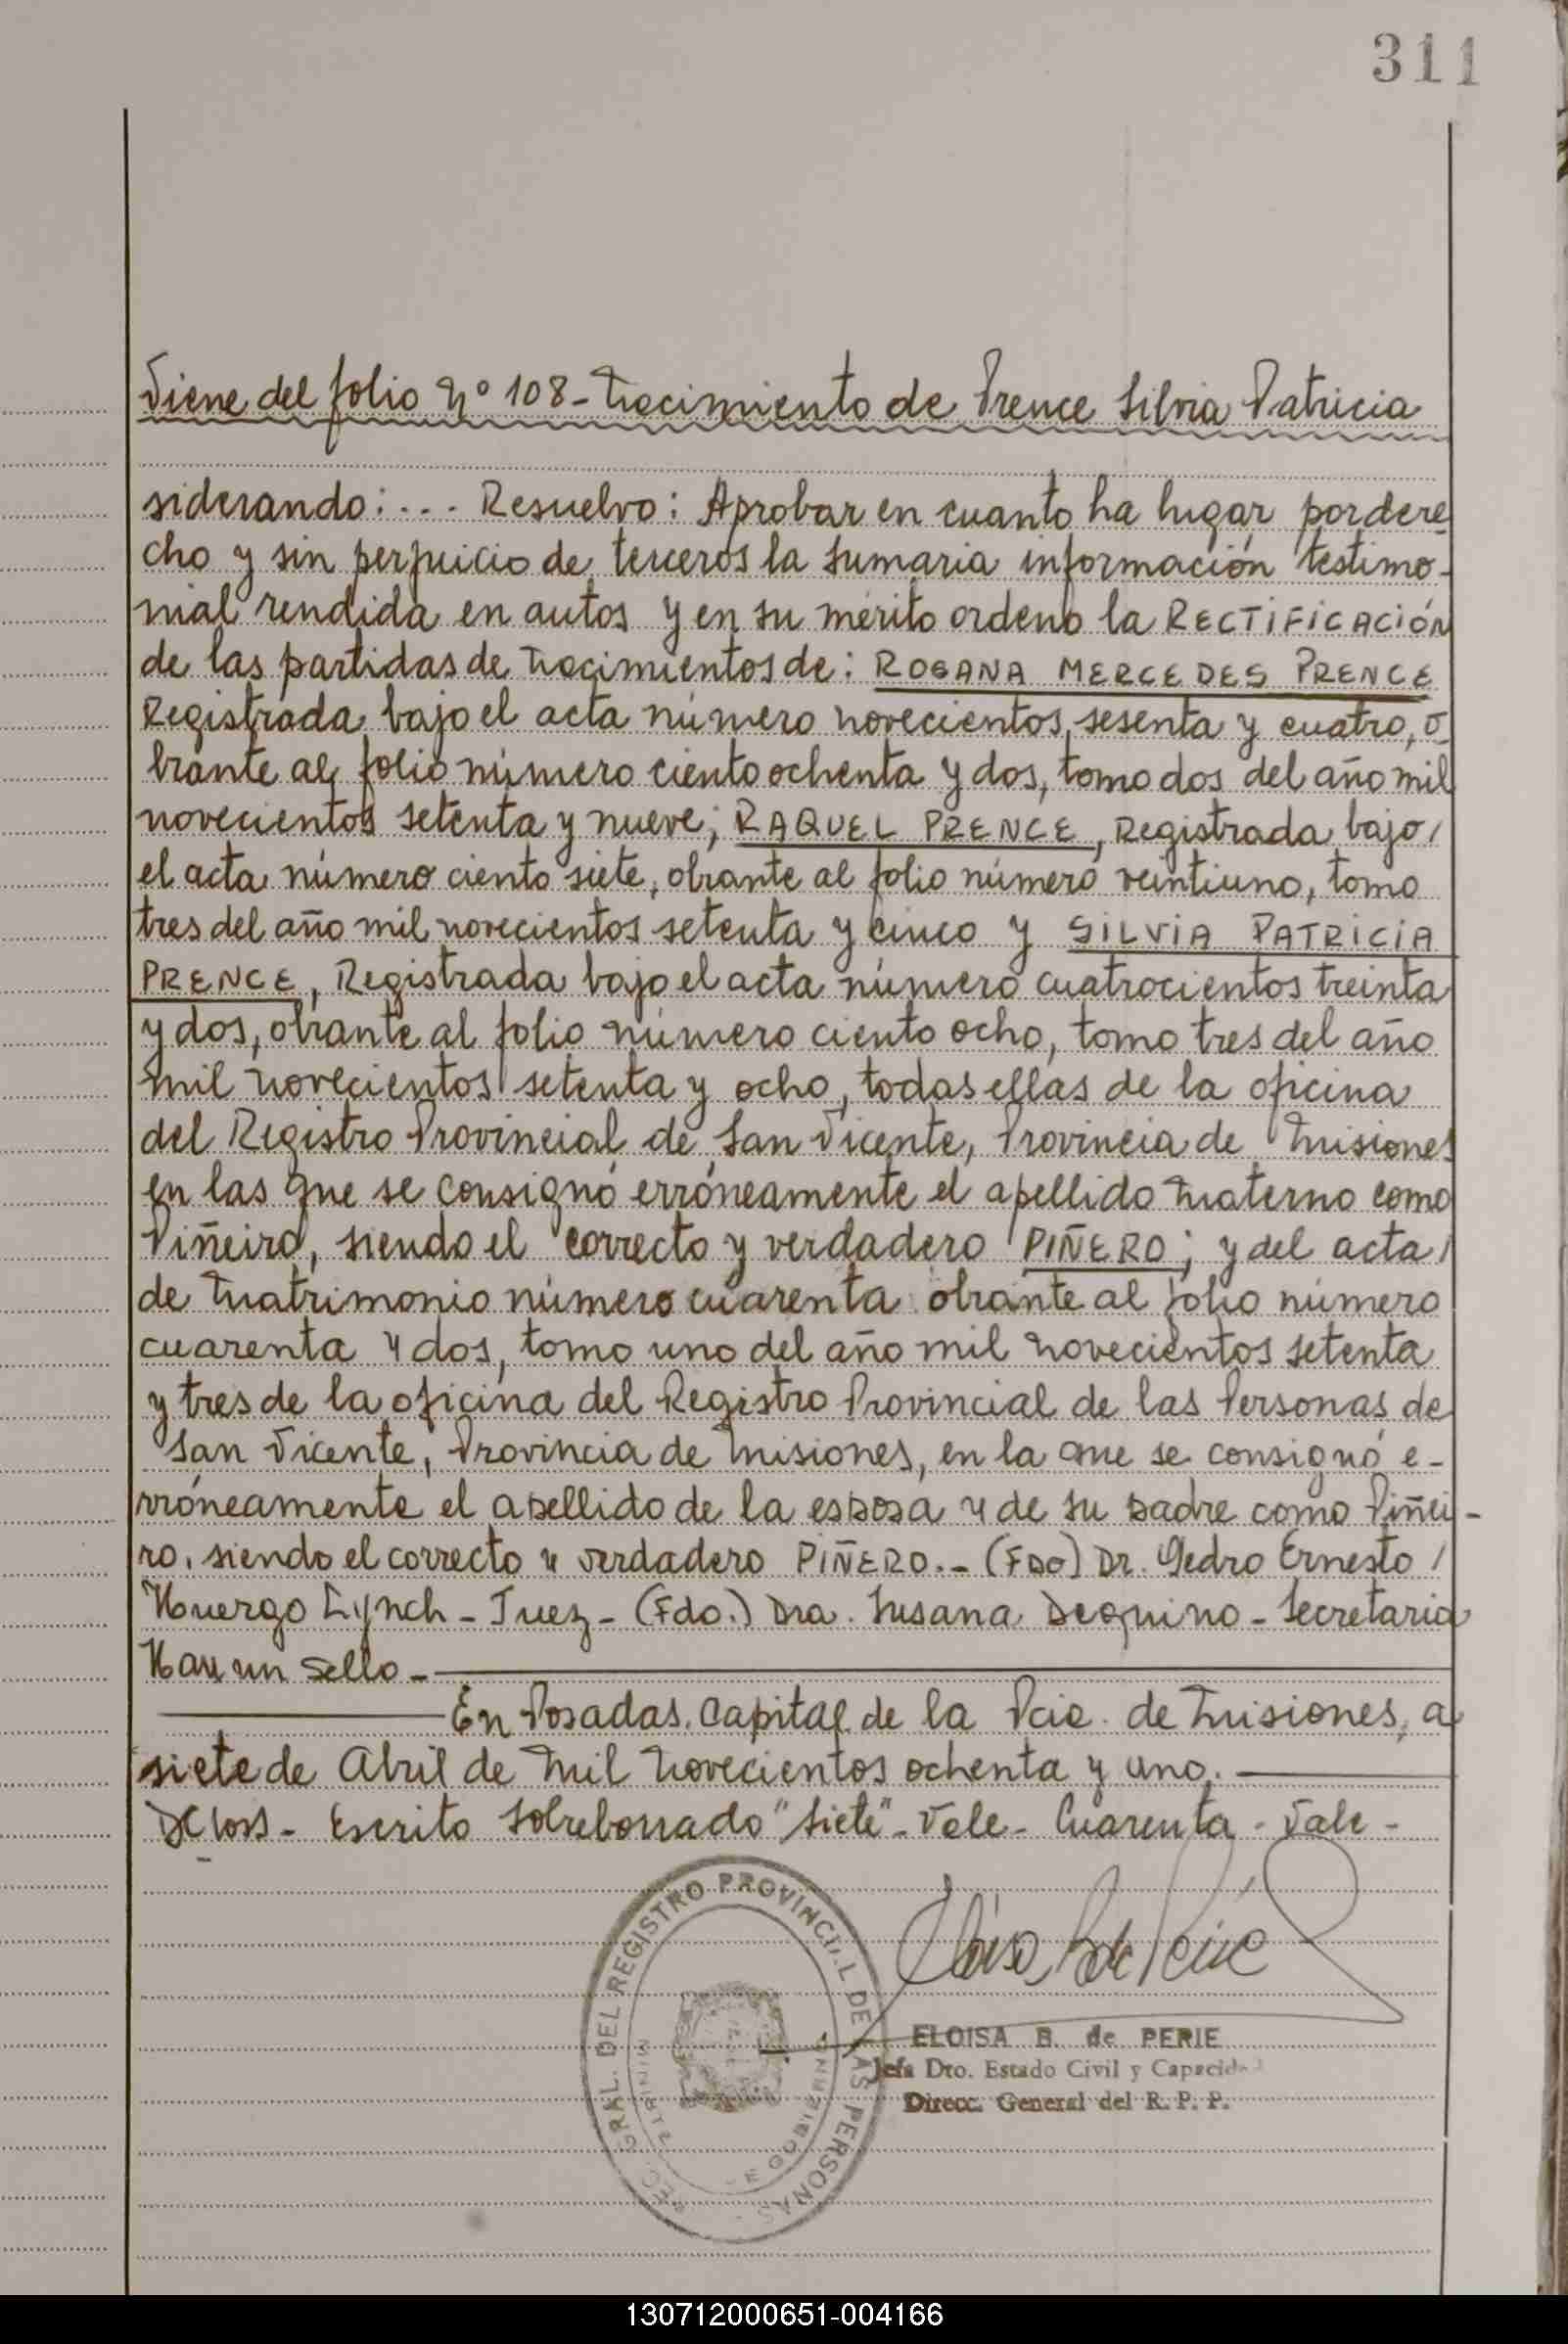 311
Viene del folio Nº 108 - Nacimiento de Prence Silvia Patricia
siderando: ... Resuelvo: Aprobar en cuanto ha lugar por dere
cho y sin perjuicio de terceros la sumaria información testimo-
nial rendida en autos y en su mérito ordeno la RECTIFICACIÓN
de las partidas de Nacimientos de: ROSANA MERCEDES PRENCE
Registrada bajo el acta número novecientos sesenta y cuatro, o
brante al folio número ciento ochenta y dos, tomo dos del año mil
novecientos setenta y nueve; RAQUEL PRENCE, Registrada bajo /
el acta número ciento siete, obrante al folio número veintiuno, tomo
tres del año mil novecientos setenta y cinco y SILVIA PATRICIA
PRENCE, Registrada bajo el acta número cuatrocientos treinta
y dos, obrante al folio número ciento ocho, tomo tres del año
mil novecientos setenta y ocho, todas ellas de la oficina
del Registro Provincial de San Vicente, Provincia de Misiones
en las que se consignó erróneamente el apellido Materno como
Piñeiro, siendo el correcto y verdadero PIÑERO; y del acta /
de Matrimonio número cuarenta obrante al folio número
cuarenta y dos, tomo uno del año mil novecientos setenta
y tres de la oficina del Registro Provincial de las Personas de
San Vicente, Provincia de Misiones, en la que se consignó e-
rróneamente el apellido de la esposa y de su padre como Piñei-
ro, siendo el correcto y verdadero PIÑERO.- (Fdo) Dr. Pedro Ernesto /
Huergo Lynch - Juez - (Fdo.) Dra. Susana Dequino - Secretaria
Hay un Sello -
En Posadas, Capital de la Pcia. de Misiones, a
siete de Abril de Mil Novecientos ochenta y uno.
Escrito sobreborrado "siete" - Vale - Cuarenta - Vale -
GRAL. DEL REGISTRO PROVINCIAL DE LAS PERSONAS
ELOISA B. de PERIE
Jefa Dto. Estado Civil y Capacidad
Direcc. General del R. P. P.
130712000651-004166